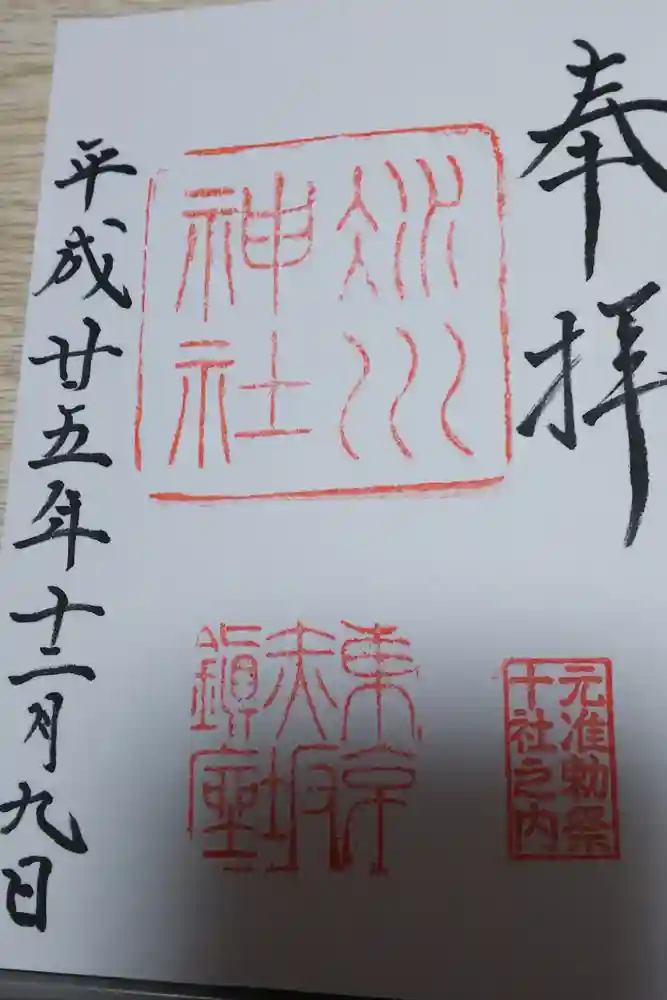 奉拝
冰川
神社
元准勅祭
十社之内
東京
赤坂
鎭座
平成廿五年十二月九日